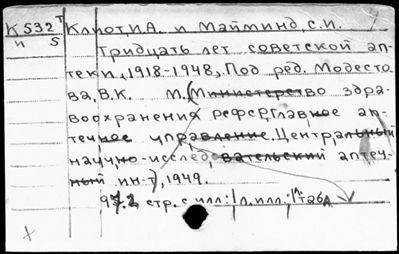 К 532 т Клиот И.А. и Майминд, С.И.
и 5 Тридцать лет советской ап-
теки, 1918-1948, Под ред. Модесто-
ва, В.К. М. (Министерство здра-
воохранения РСФСР, Главное ап-
течное управление. Центральный
научно-исследовательский аптеч-
ный ин-т), 1949.
97,2 стр. с илл; 1 л. илл;